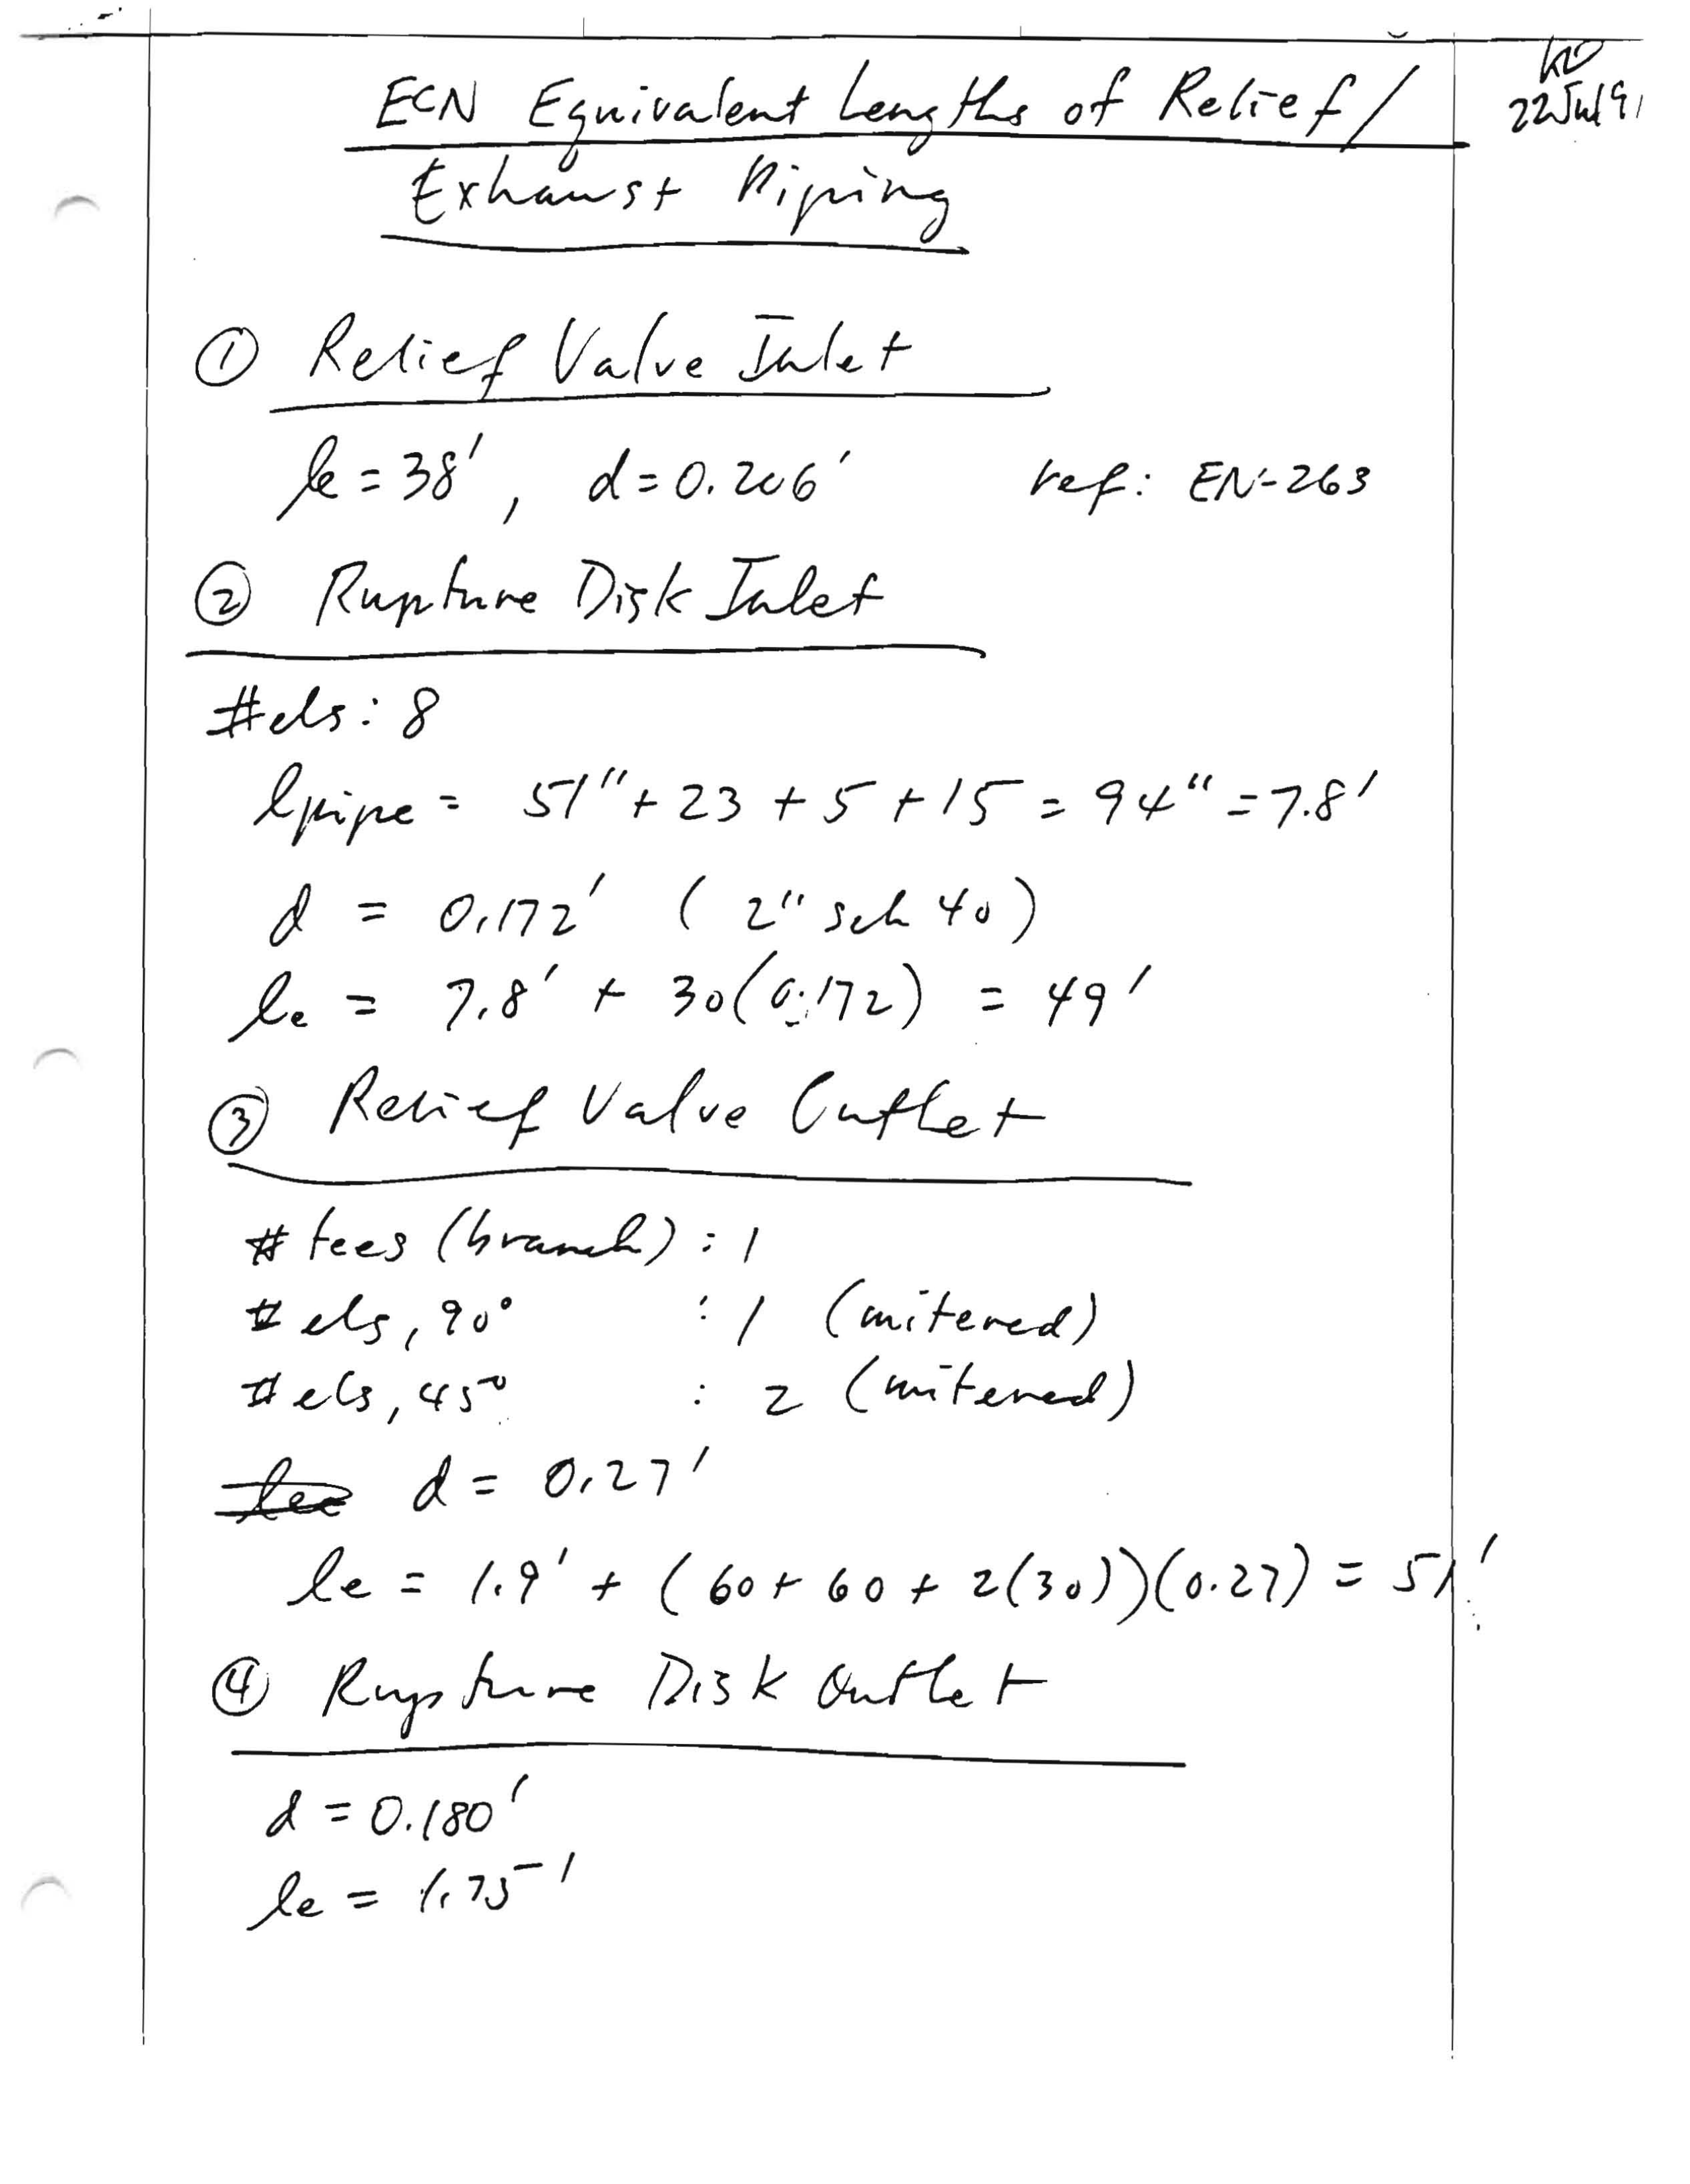 ECN Equivalent Lengths of Relief/
Exhaust Piping
22Jul91
① Relief Valve Inlet
le = 38', d = 0.206' ref: EN-263
② Rupture Disk Inlet
#els: 8
lpipe = 51" + 23 + 5 + 15 = 94" = 7.8'
d = 0.172' (2" sch 40)
le = 7.8' + 30(0.172) = 49'
③ Relief Valve Outlet
# tees (branch) : 1
# els, 90° : 1 (mitered)
# els, 45° : 2 (mitered)
d = 0.27'
le = 1.9' + (60 + 60 + 2(30))(0.27) = 51'
④ Rupture Disk Outlet
d = 0.180'
le = 1.75'